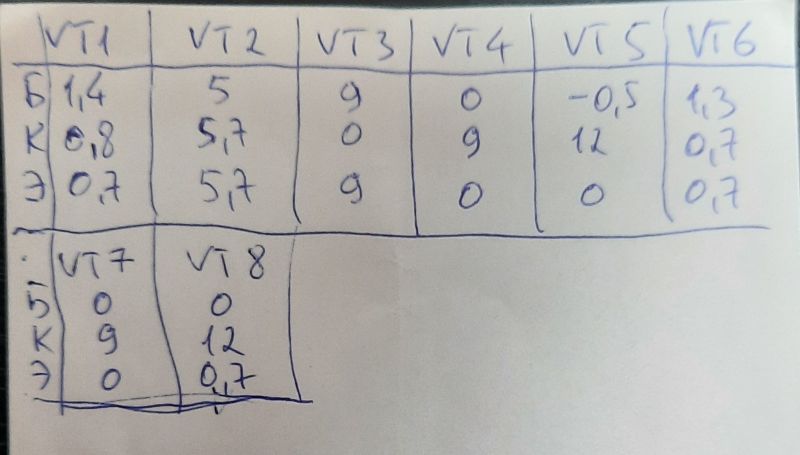 VT1 VT2 VT3 VT4 VT5 VT6
Б 1,4 5 9 0 -0,5 1,3
К 0,8 5,7 0 9 12 0,7
Э 0,7 5,7 9 0 0 0,7
VT7 VT8
Б 0 0
К 9 12
Э 0 0,7